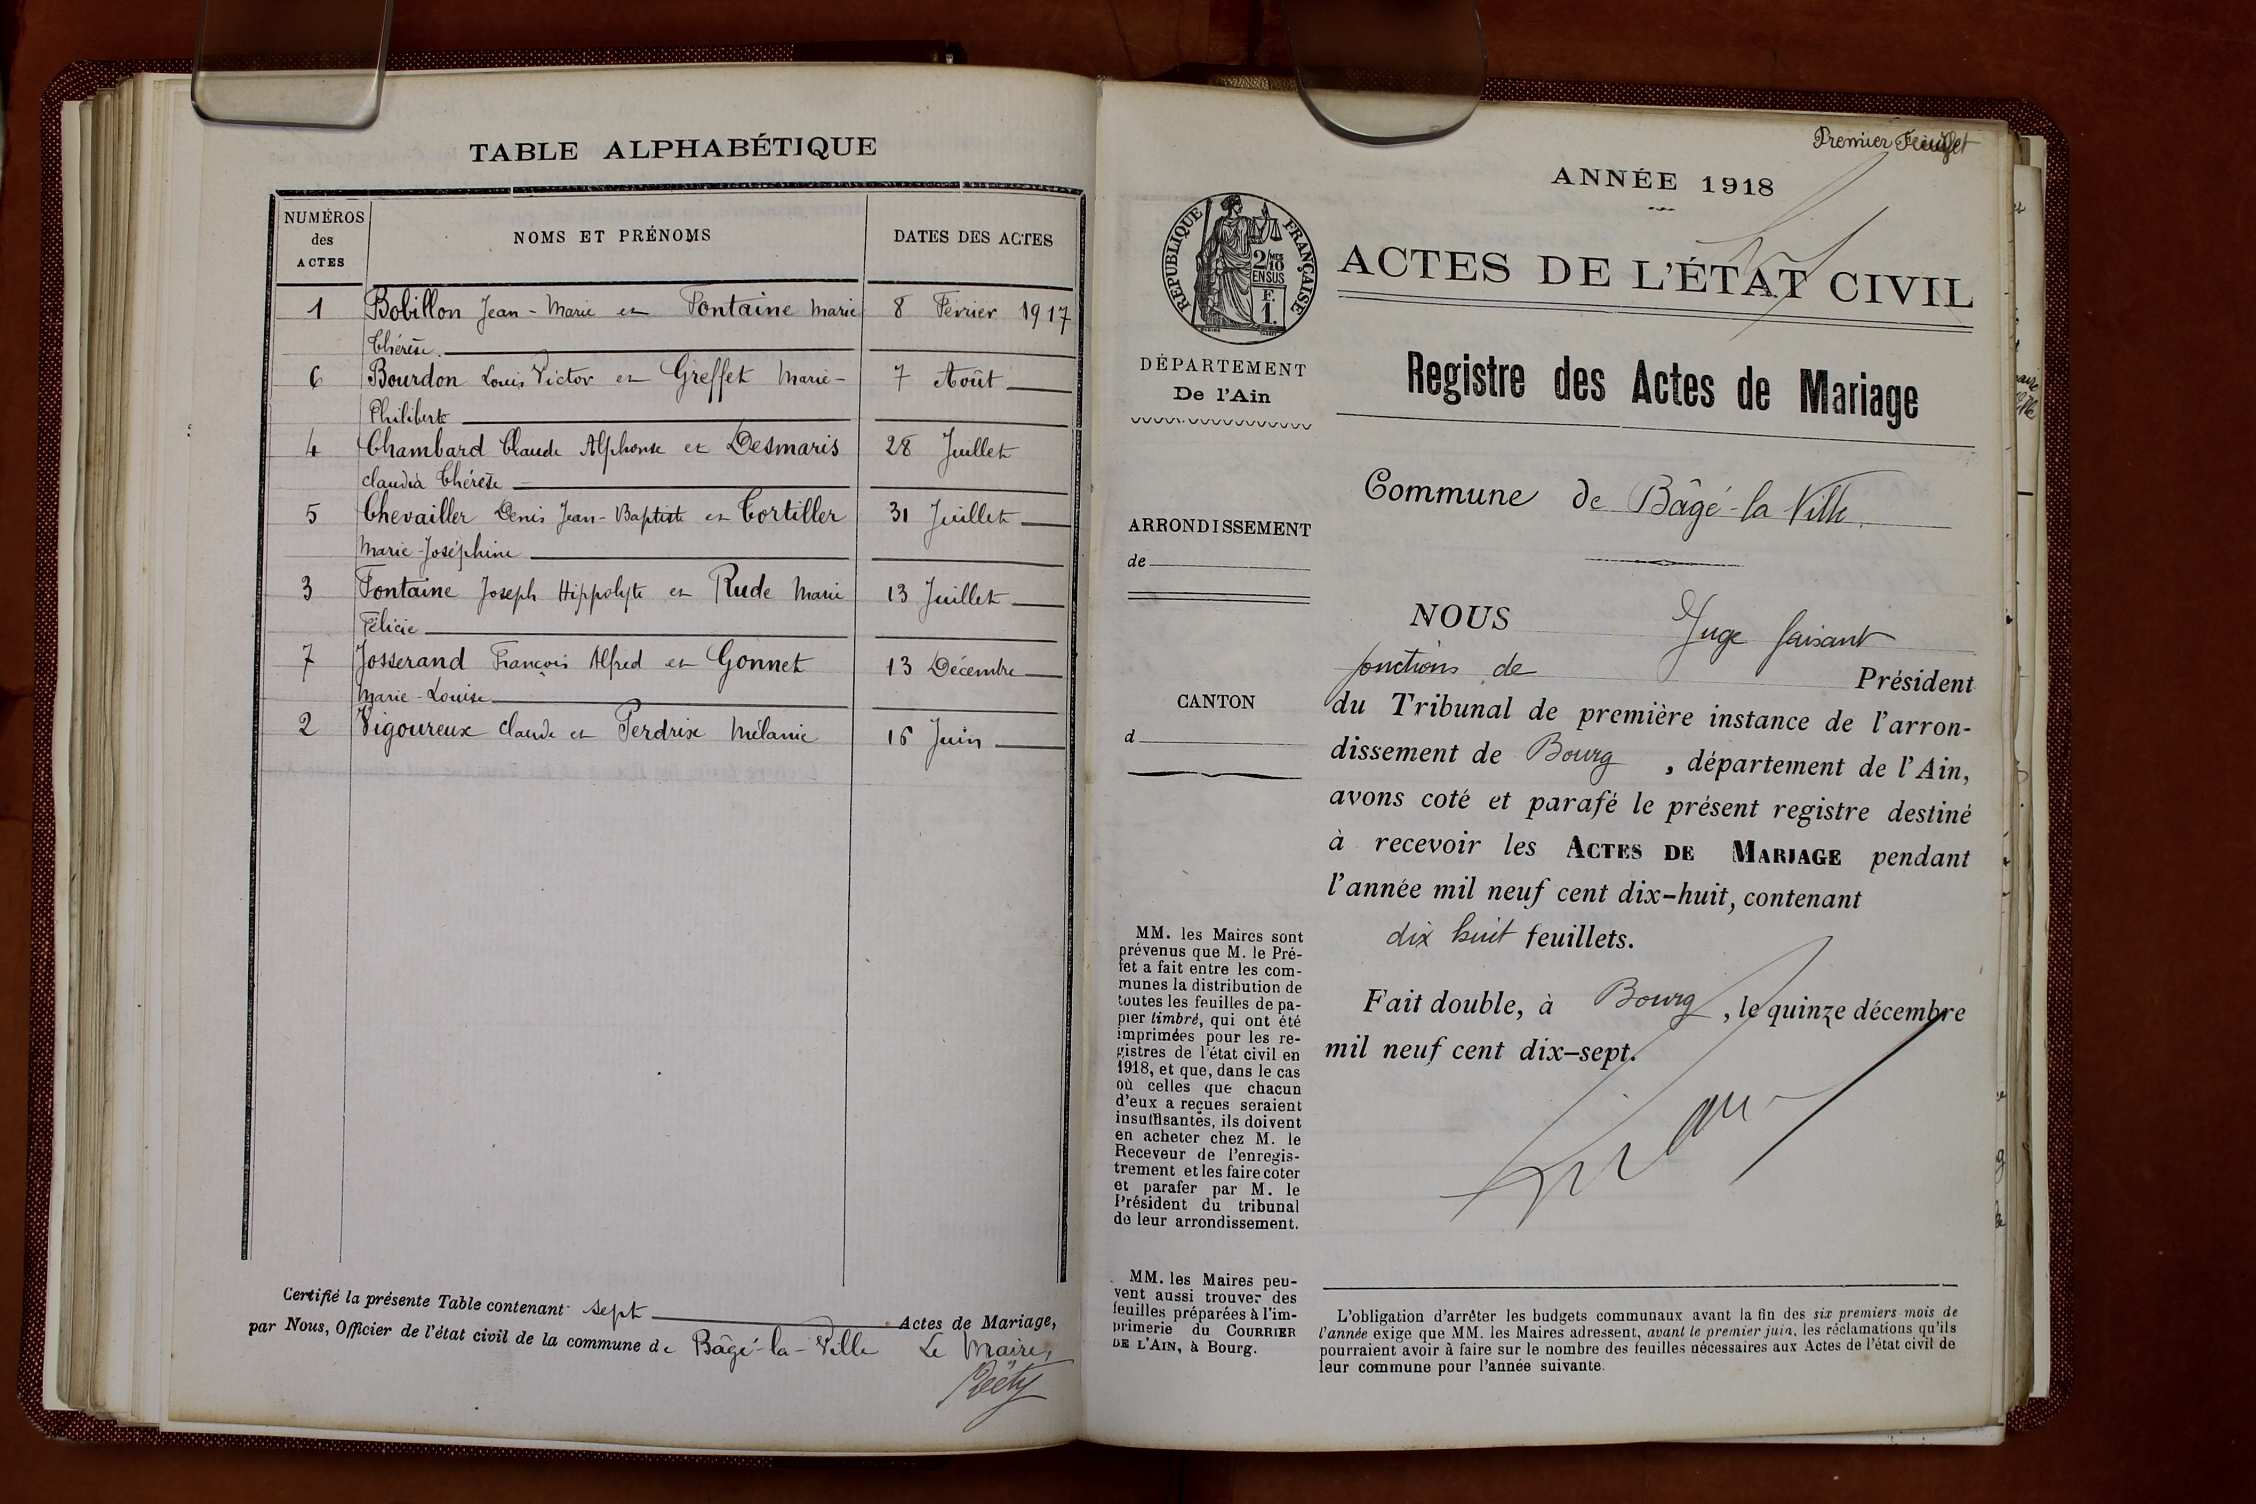 TABLE ALPHABÉTIQUE
NUMÉROS
des
ACTES
NOMS ET PRÉNOMS
DATES DES ACTES
1 Bobillon Jean-Marie et Fontaine Marie 8 Février 1917
Thérèse.
6 Bourdon Louis Victor et Greffet Marie- 7 Août
Philiberte
4 Chambard Claude Alphonse et Desmaris 28 Juillet
Claudia Thérèse
5 Chevailler Denis Jean-Baptiste et Tortiller 31 Juillet
Marie-Joséphine
3 Fontaine Joseph Hippolyte et Rude Marie 13 Juillet
Félicie
7 Josserand François Alfred et Gonnet 13 Décembre
Marie-Louise
2 Vigoureux Claude et Perdrix Mélanie 16 Juin
Certifié la présente Table contenant sept Actes de Mariage,
par Nous, Officier de l'état civil de la commune de Bâgé-la-Ville Le Maire,
Premier Feuillet
ANNÉE 1918
RÉPUBLIQUE FRANÇAISE
2/10 MES
EN SUS
F.
1.
ACTES DE L'ÉTAT CIVIL
DÉPARTEMENT
De l'Ain
Registre des Actes de Mariage
Commune de Bâgé-la-Ville.
ARRONDISSEMENT
de
CANTON
d
NOUS Juge faisant
fonctions de Président
du Tribunal de première instance de l'arron-
dissement de Bourg, département de l'Ain,
avons coté et parafé le présent registre destiné
à recevoir les ACTES DE MARIAGE pendant
l'année mil neuf cent dix-huit, contenant
dix huit feuillets.
Fait double, à Bourg, le quinze décembre
mil neuf cent dix-sept.
MM. les Maires sont
prévenus que M. le Pré-
fet a fait entre les com-
munes la distribution de
toutes les feuilles de pa-
pier timbré, qui ont été
imprimées pour les re-
gistres de l'état civil en
1918, et que, dans le cas
où celles que chacun
d'eux a reçues seraient
insuffisantes, ils doivent
en acheter chez M. le
Receveur de l'enregis-
trement et les faire coter
et parafer par M. le
Président du tribunal
de leur arrondissement.
MM. les Maires peu-
vent aussi trouver des
feuilles préparées à l'im-
primerie du COURRIER
DE L'AIN, à Bourg.
L'obligation d'arrêter les budgets communaux avant la fin des six premiers mois de
l'année exige que MM. les Maires adressent, avant le premier juin, les réclamations qu'ils
pourraient avoir à faire sur le nombre des feuilles nécessaires aux Actes de l'état civil de
leur commune pour l'année suivante.